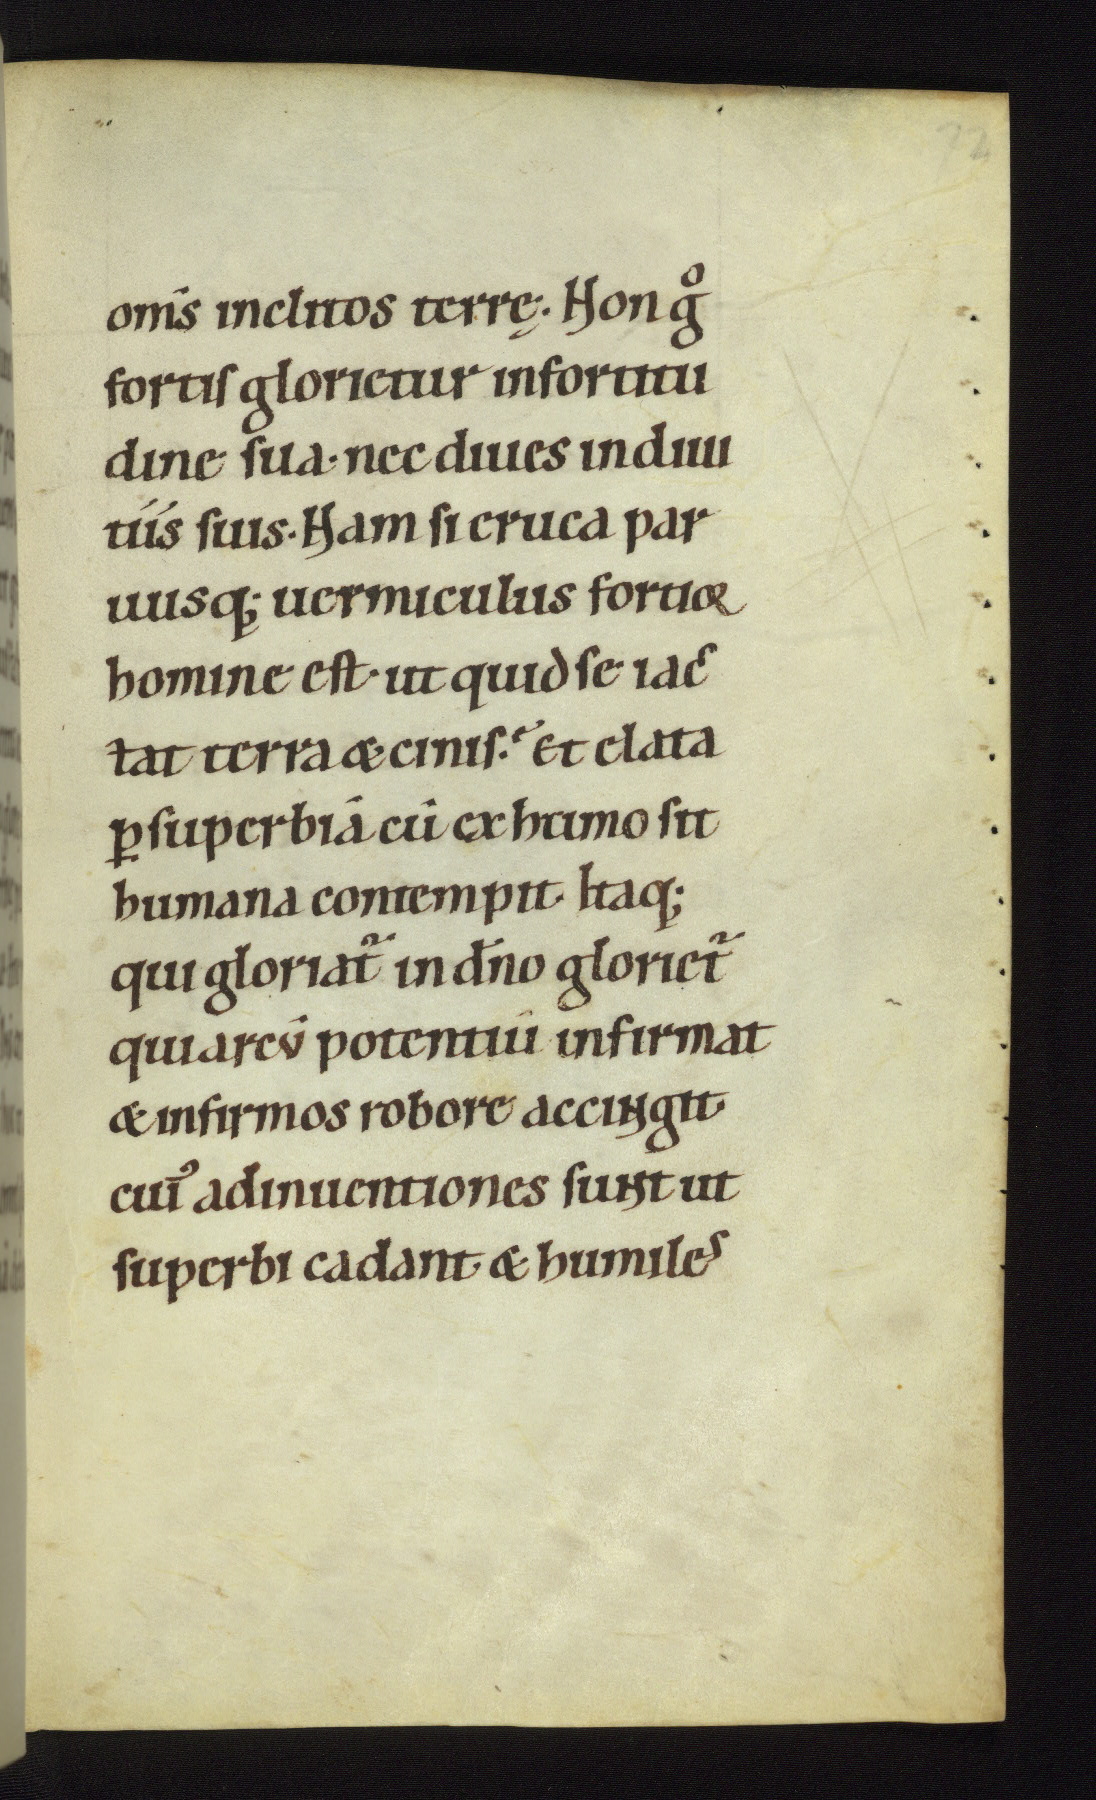 72
om̄s inclitos terrę. Non gͦ
fortiſ glorietur in fortitu
dine ſua. nec diues in diui
tiis ſuis. Nam ſi eruca par
uusq; uermiculus fortior
homine eſt. ut quid ſe iac
tat terra & cinis? Et elata
ꝑ ſuperbiā cū ex humo ſit
humana contempit. Itaq;
qui gloriat᷑ in dn̄o gloriet᷑
qui arcū potentiū infirmat
& infirmos robore accingit
cui᷒ adinuentiones ſunt ut
ſuperbi cadant & humiles